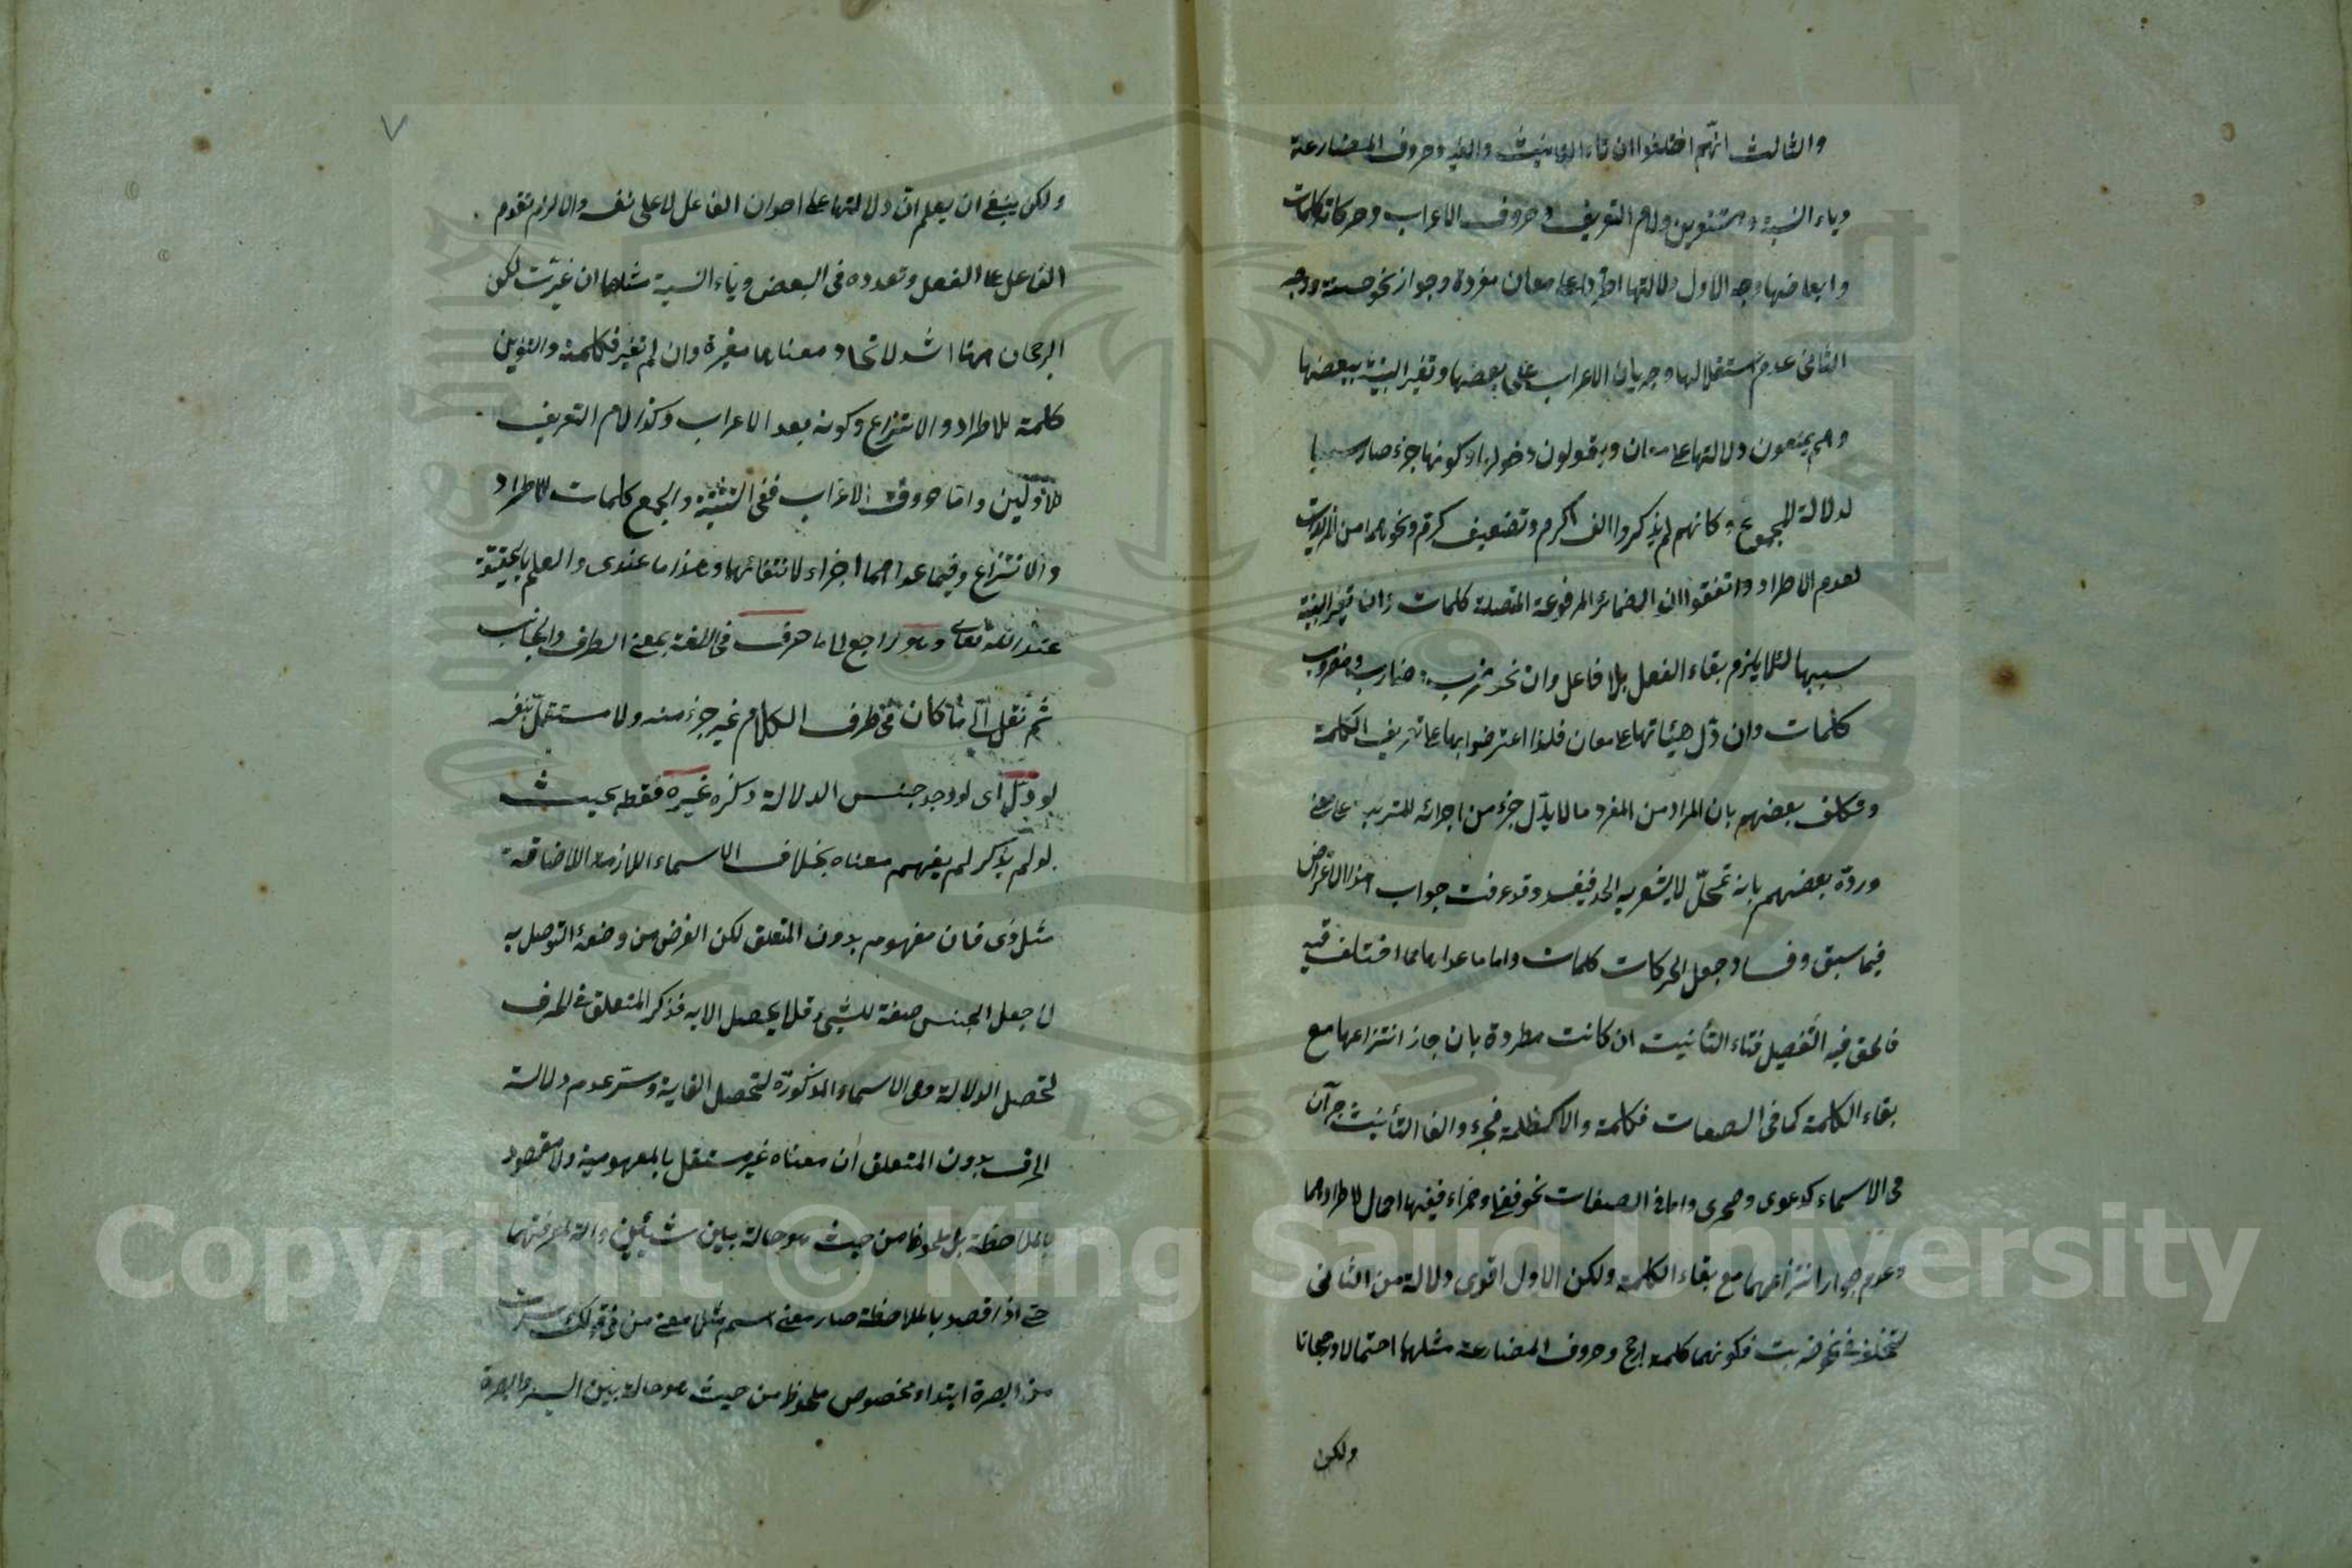 والثالث انهم اختلفوا ان تاء التانيث والفيه وحروف المضارعة
وياء النسبة والتنوين ولام التعريف وحروف الاعراب وحركاته كلمات
وابعاضها وجه الاول دلالتها اطرادا على معان مفردة وجواز نحو حسنة ووجه
الثانى عدم استقلالها وجريان الاعراب على بعضها وتغير البنية ببعضها
وهم يمنعون دلالتها على معان ويقولون دخولها وكونها جزء صار سببا
لدلالة المجموع وكانهم لم يذكروا الف اكرم وتضعيف كرّم ونحوهما من المزيدات
لعدم الاطراد واتفقوا ان الضمائر المرفوعة المتصلة كلمات وان تغير البنية
سببها لئلا يلزم بقاء الفعل بلا فاعل وان نحو ضرب وضارب ومضروب
كلمات وان دل هيئاتها على معان فلذا اعترضوا بها على تعريف الكلمة
وتكلف بعضهم بان المراد من المفرد ما لا يدل جزء من اجزائه المترتبة على معنى
وردّه بعضهم بانه تمحّل لا يشعر به الحد فيفسد وقد عرفت جواب هذا الاعتراض
فيما سبق وفساد جعل الحركات كلمات واما ما عداها مما اختلف فيه
فالحق فيه التفصيل فتاء التأنيث ان كانت مطردة بان جاز انتزاعها مع
بقاء الكلمة كما فى الصفات فكلمة والا كظلمة فجزء والفا التأنيث جزآن
فى الاسماء كدعوى وصحرى واما فى الصفات نحو فضلى وحمراء ففيها احتمال لاطرادهما
وعدم جواز انتزاعهما مع بقاء الكلمة ولكن الاول اقوى دلالة من الثانى
لتخلفه فى نحو ضربت فكونهما كلمة ارجح وحروف المضارعة مثلهما احتمالا ورجحانا
ولكن
٧
ولكن ينبغى ان يعلم ان دلالتها على احوال الفاعل لا على نفسه والا لزم تقدم
الفاعل على الفعل وتعدده فى البعض وياء النسبة مثلها ان غيّرت لكن
الرجحان ههنا اشد لاتحاد معناها مغيرة وان لم تغير فكلمة والتنوين
كلمة للاطراد والانتزاع وكونه بعد الاعراب وكذا لام التعريف
للاولين واما حروف الاعراب ففى التثنية والجمع كلمات للاطراد
والانتزاع وفيما عداهما اجزاء لانتفائهما وهذا ما عندى والعلم بالحقيقة
عند الله تعالى وهو راجع الى ما حرف فى اللغة بمعنى الطرف والجانب
ثم نقل الى ما كان فى طرف الكلام غير جزء منه ولا مستقل بنفسه
لو دلّ اى لو وجد جنس الدلالة ذكره غيره فقط بحيث
لو لم يذكر لم يفهم معناه بخلاف الاسماء اللازمة الاضافة
مثل ذى فان مفهومه بدون المتعلق لكن الغرض من وضعه التوصل به
الى جعل الجنس صفة للشىء فلا يحصل الا به فذكر المتعلق فى الحرف
لتحصل الدلالة وفى الاسماء المذكورة لتحصل الغاية وسرّ عدم دلالة
الحرف بدون المتعلق ان معناه غير مستقل بالمفهومية ولا مقصود
بالملاحظة بل ملحوظ من حيث هو حالة بين شيئين والة لمعرفتهما
حتى اذا قصد بالملاحظة صار معنى اسم مثلا معنى من فى قولك سرت
من البصرة ابتداء مخصوص ملحوظ من حيث هو حالة بين السير والبصرة
Copyright © King Saud University